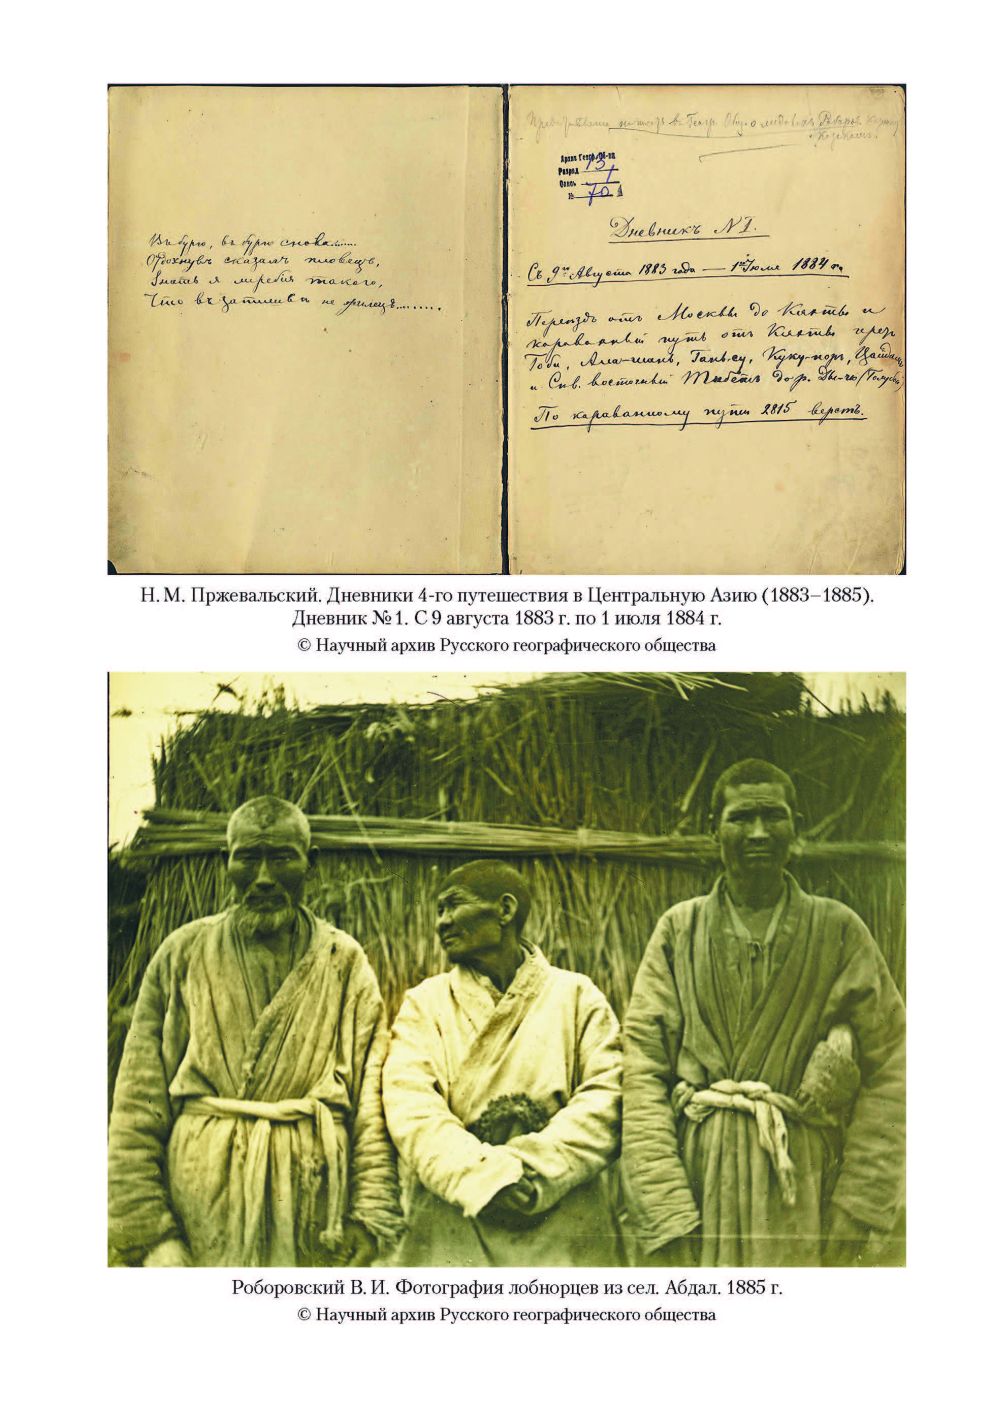 Въ бурю, въ бурю снова......
Отдохнувъ сказалъ пловецъ,
Знать я жребія такого,
Что въ затишьи не жилецъ.......
въ Геогр.
Архив Геогр. Об-ва
Разряд 13
Опись 1
№ 70
Дневникъ № I.
Съ 9го Августа 1883 года — 1го Июля 1884 г.
Переѣздъ отъ Москвы до Кяхты и
караванный путь отъ Кяхты чрезъ
Гоби, Ала-шань, Гань-су, Куку-норъ, Цайдамъ
и Сѣв. восточный Тибетъ до р. Ды-чю (Голубой)
По караванному пути 2815 верстъ.
Н. М. Пржевальский. Дневники 4-го путешествия в Центральную Азию (1883–1885).
Дневник № 1. С 9 августа 1883 г. по 1 июля 1884 г.
© Научный архив Русского географического общества
Роборовский В. И. Фотография лобнорцев из сел. Абдал. 1885 г.
© Научный архив Русского географического общества